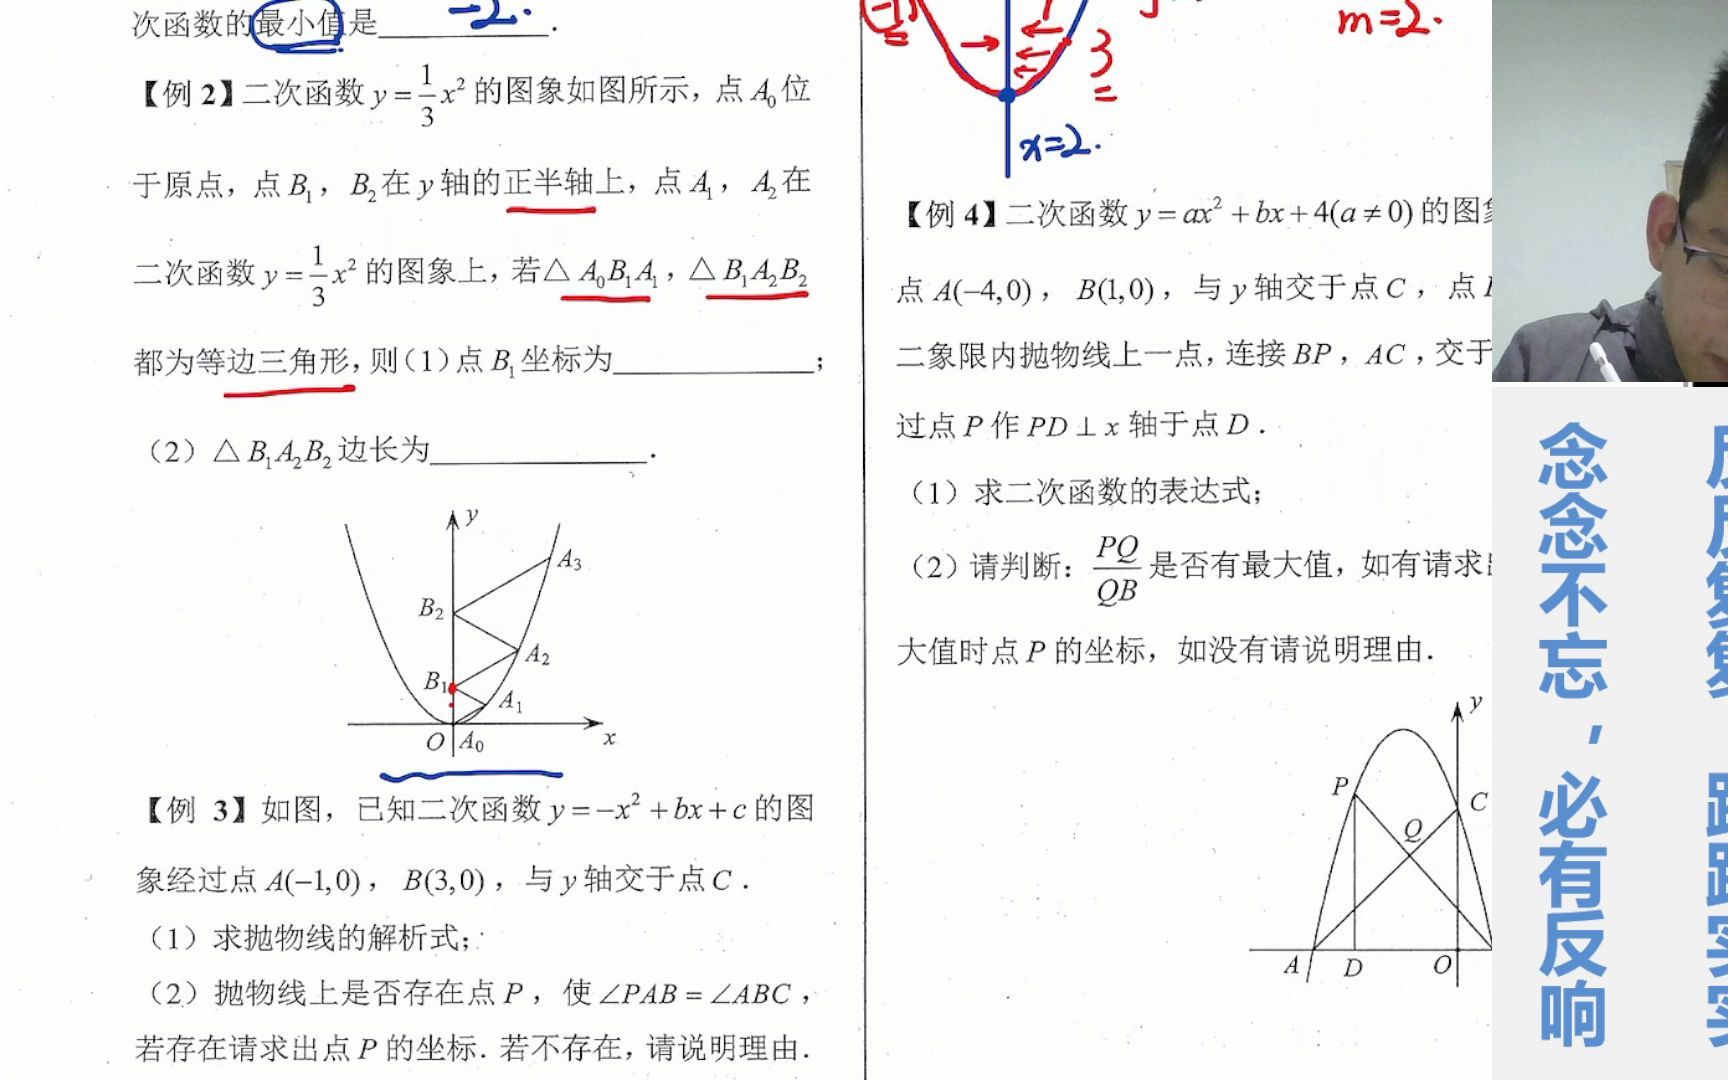 次函数的最小值是 -2.
【例 2】二次函数 y=1/3 x² 的图象如图所示，点 A₀ 位
于原点，点 B₁，B₂ 在 y 轴的正半轴上，点 A₁，A₂ 在
二次函数 y=1/3 x² 的图象上，若△ A₀B₁A₁，△ B₁A₂B₂
都为等边三角形，则（1）点 B₁ 坐标为____________；
（2）△ B₁A₂B₂ 边长为____________．
y
A₃
B₂
A₂
B₁
A₁
O A₀ x
【例 3】如图，已知二次函数 y=-x²+bx+c 的图
象经过点 A(-1,0)，B(3,0)，与 y 轴交于点 C．
（1）求抛物线的解析式；
（2）抛物线上是否存在点 P，使 ∠PAB=∠ABC，
若存在请求出点 P 的坐标．若不存在，请说明理由．
m=2.
3
x=2.
【例 4】二次函数 y=ax²+bx+4(a≠0) 的图
点 A(-4,0)，B(1,0)，与 y 轴交于点 C，点
二象限内抛物线上一点，连接 BP，AC，交于
过点 P 作 PD⊥x 轴于点 D．
（1）求二次函数的表达式；
（2）请判断：PQ/QB 是否有最大值，如有请求
大值时点 P 的坐标，如没有请说明理由．
y
P
C
Q
A D O
念念不忘，必有反响